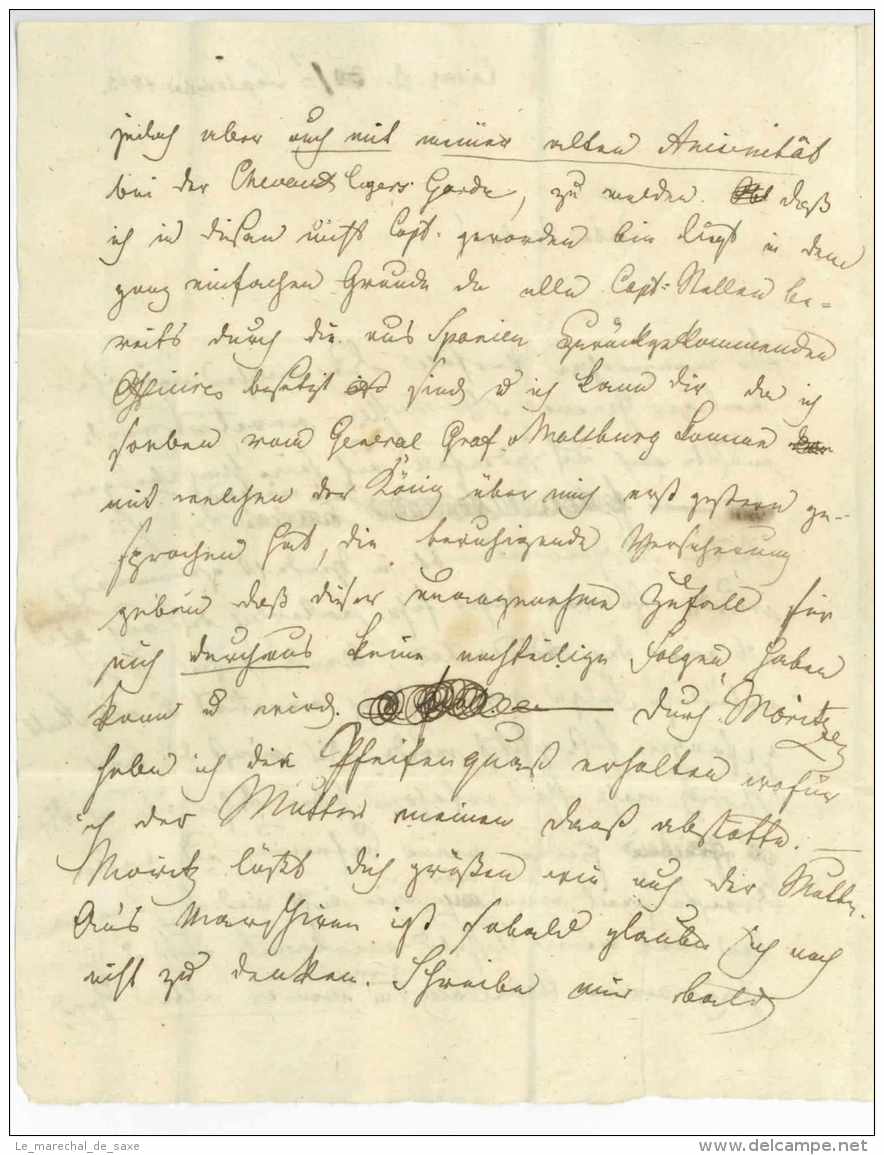 jedoch aber auch mit meiner alten Ancienität
bei der Chevaux legers Garde, zu melden. daß
ich in diesen nicht Capt. geworden bin liegt in dem
ganz einfachen Grunde da alle Capt: Stellen be=
reits durch die aus Spanien zurückgekommenden
Officires besetzt sind u ich kann dir da ich
soeben vom General Graf v Malsburg komme
mit welchen der König über mich erst gestern ge-
sprochen hat, die beruhigende Versicherung
geben daß dieser unangenehme Zufall für
mich durchaus keine nachteilige Folgen haben
kann u wird. durch Moritz
habe ich die Pfeifenquast erhalten wofür
ich der Mutter meinen Dank abstatte. —
Moritz läßt dich grüßen wie auch der Mutter.
Aus Marschiren ist sobald glaube ich noch
nicht zu denken. Schreibe mir bald
Le_marechal_de_saxe
www.delcampe.net